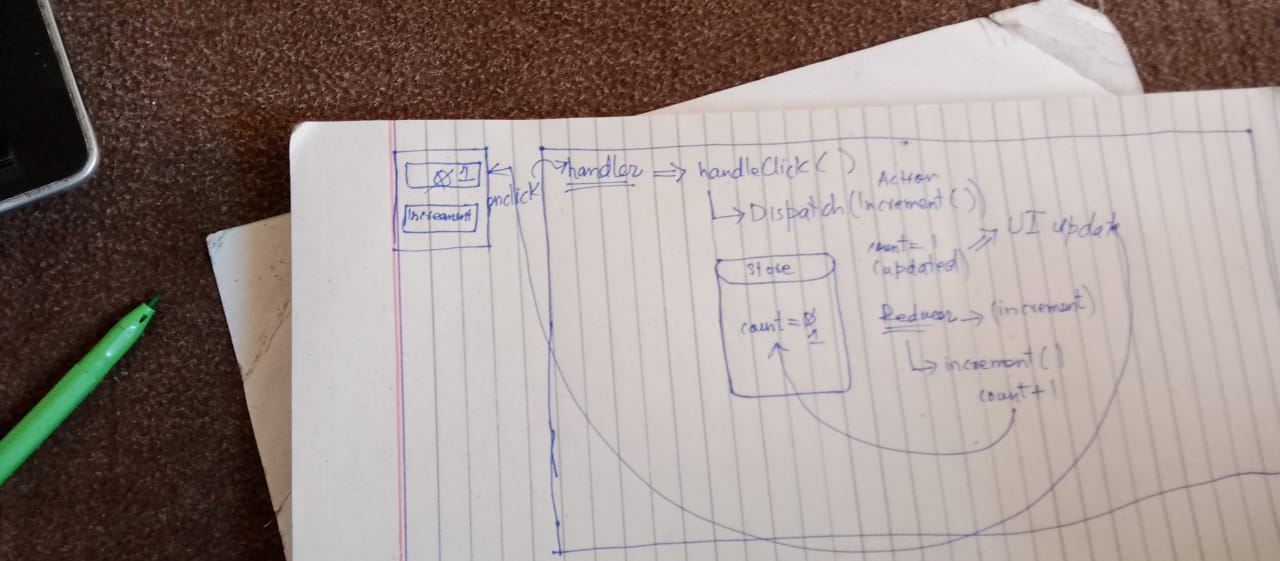 0 1
Increament
onclick
handler ⇒ handleClick()
Action
↳ Dispatch(Increment())
count = 1 ⇒ UI update
(updated)
Store
count = 0
1
Reducer → (increment)
↳ increment()
count + 1